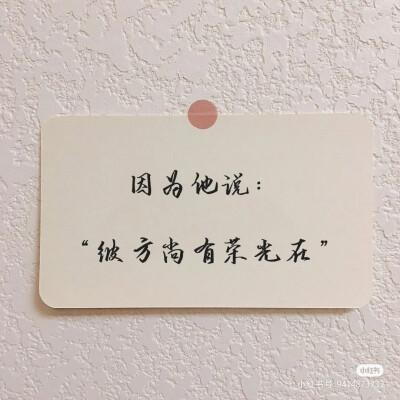 因为他说：
“彼方尚有荣光在”
小红书
小红书号:9414873737